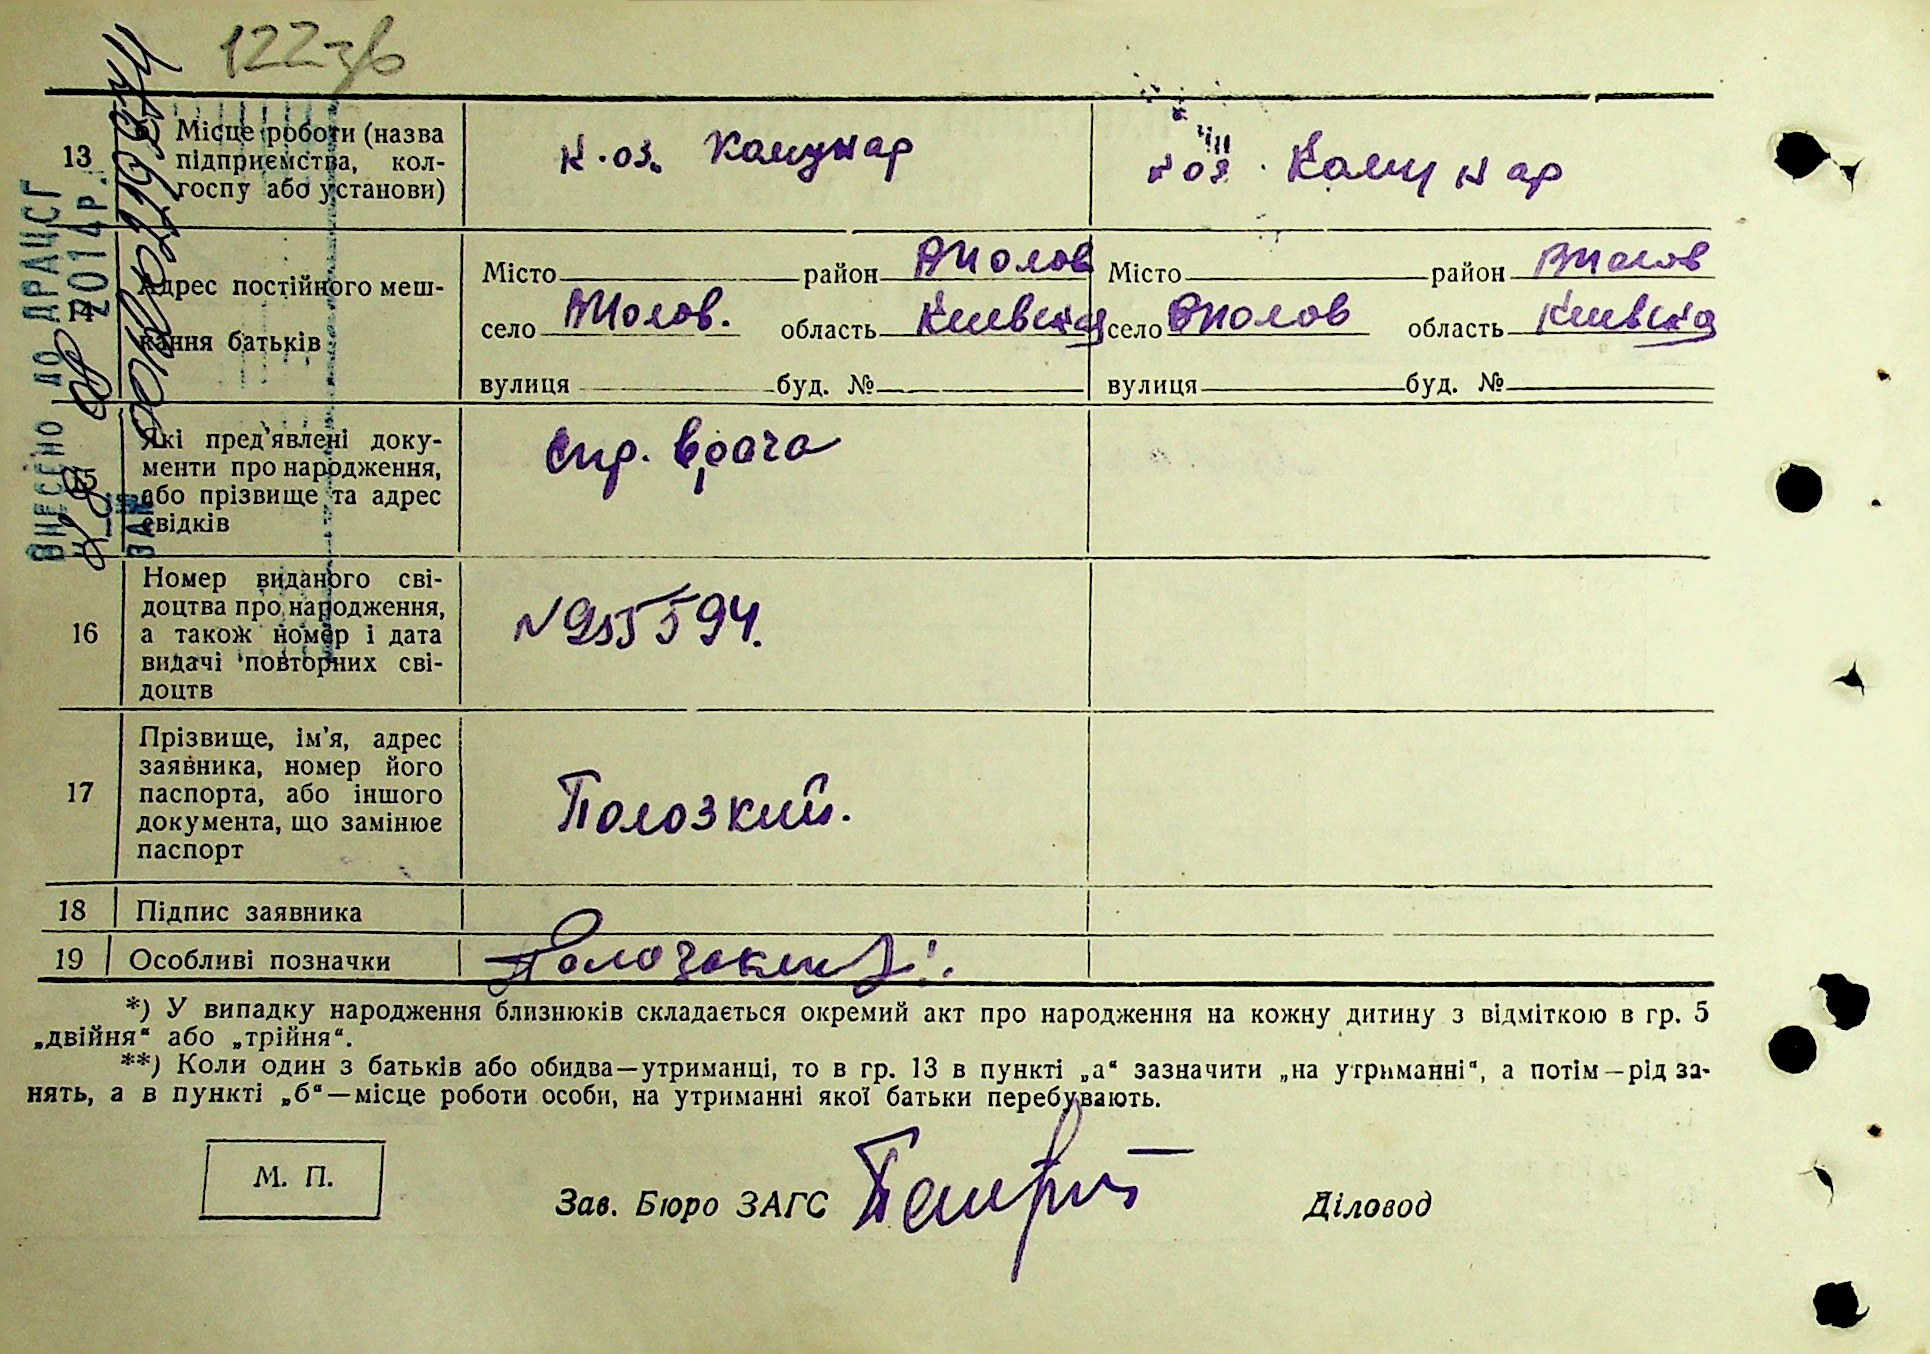 122зв
13 б) Місце роботи (назва
підприємства, кол-
госпу або установи)
к-оз. Комунар
коз. Комунар
14 Адрес постійного меш-
кання батьків
Місто район
село область Киевская
вулиця буд. №
Місто район
село область Киевская
вулиця буд. №
15 Які пред'явлені доку-
менти про народження,
або прізвище та адрес
свідків
спр. врача
16 Номер виданого сві-
доцтва про народження,
а також номер і дата
видачі повторних сві-
доцтв
№955594.
17 Прізвище, ім'я, адрес
заявника, номер його
паспорта, або іншого
документа, що замінює
паспорт
Полозкий.
18 Підпис заявника
19 Особливі позначки
*) У випадку народження близнюків складається окремий акт про народження на кожну дитину з відміткою в гр. 5
„двійня“ або „трійня“.
**) Коли один з батьків або обидва—утриманці, то в гр. 13 в пункті „а“ зазначити „на утриманні“, а потім—рід за-
нять, а в пункті „б“—місце роботи особи, на утриманні якої батьки перебувають.
М. П.
Зав. Бюро ЗАГС
Діловод
ВНЕСЕНО ДО ДРАЦСГ
2014р.